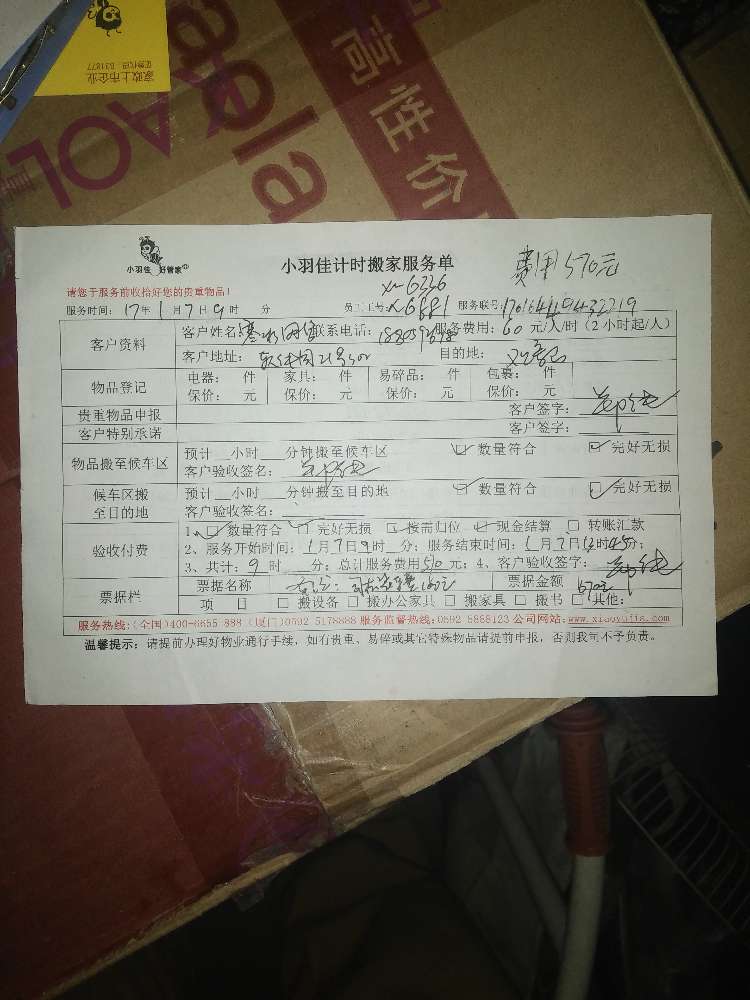 家政上市企业
证券代码 831877
aela
KAOL
高性价
小羽佳 好管家
小羽佳计时搬家服务单
费用570元
请您于服务前收拾好您的贵重物品!
X-6336
服务时间: 17年 1月 7日 9时 分 员工工号: X-6881 服务联号:
客户资料 客户姓名: 联系电话: 服务费用: 60 元/人/时 (2小时起/人)
客户地址: 软件园 目的地:
物品登记 电器: 件 家具: 件 易碎品: 件 包裹: 件
保价: 元 保价: 元 保价: 元 保价: 元
贵重物品申报 客户签字:
客户特别承诺 客户签字:
物品搬至候车区 预计 小时 分钟搬至候车区 数量符合 完好无损
客户验收签名:
候车区搬至目的地 预计 小时 分钟搬至目的地 数量符合 完好无损
客户验收签名:
验收付费 1、 数量符合 完好无损 按需归位 现金结算 转账汇款
2、服务开始时间: 1月7日9时 分; 服务结束时间: 1月7日 时45分;
3、共计: 9 时 分; 总计服务费用 元; 4、客户验收签字:
票据栏 票据名称 票据金额
项 目 搬设备 搬办公家具 搬家具 搬书 其他:
服务热线:(全国)400-6655 888 (厦门)0592 5178888 服务监督热线:0592 5888123 公司网站:www.xiaoyujia.com
温馨提示: 请提前办理好物业通行手续, 如有贵重、易碎或其它特殊物品请提前申报, 否则我司不予负责。